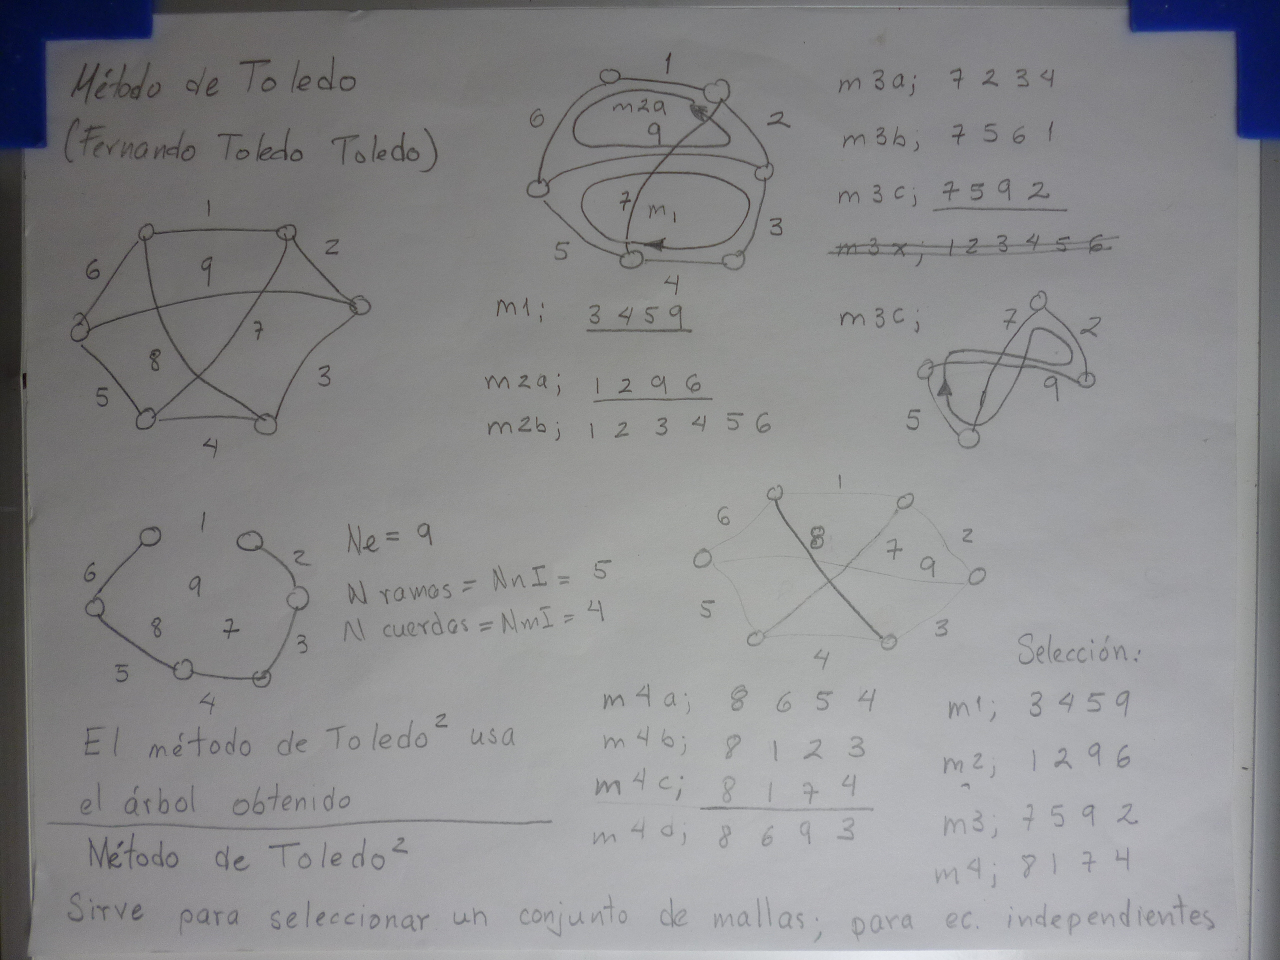 Método de Toledo
(Fernando Toledo Toledo)
1
6
9
2
8
7
5
3
4
1
6
m2a
9
2
7
m1
3
5
4
m1; 3 4 5 9
m2a; 1 2 9 6
m2b; 1 2 3 4 5 6
m3a; 7 2 3 4
m3b; 7 5 6 1
m3c; 7 5 9 2
m3x; 1 2 3 4 5 6
m3c;
7
2
9
5
1
6
9
2
8
7
3
5
4
Ne = 9
N ramas = NnI = 5
N cuerdas = NmI = 4
1
6
8
7
2
9
5
3
4
El método de Toledo² usa
el árbol obtenido
m4a; 8 6 5 4
m4b; 8 1 2 3
m4c; 8 1 7 4
m4d; 8 6 9 3
Selección:
m1; 3 4 5 9
m2; 1 2 9 6
m3; 7 5 9 2
m4; 8 1 7 4
Método de Toledo²
Sirve para seleccionar un conjunto de mallas; para ec. independientes